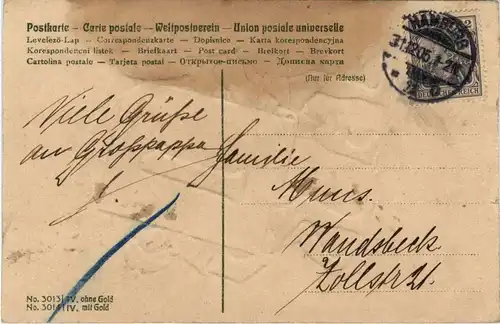 Postkarte — Carte postale — Weltpostverein — Union postale universelle
Levelező-Lap — Correspondenzkarte — Dopisnice — Karta korespondencyjna
Korespondenčni listek — Briefkaart — Post card — Brefkort — Brevkort
Cartolina postale — Tarjeta postal — Открытое письмо — Дописна карта
(Nur für Adresse)
HAMBURG
2
DEUTSCHES REICH
Viele Grüße
an Großpappa
Familie
Muus.
Wandsbeck
Zollstr 21.
No. 3013/IV, ohne Gold
No. 3014/IV, mit Gold